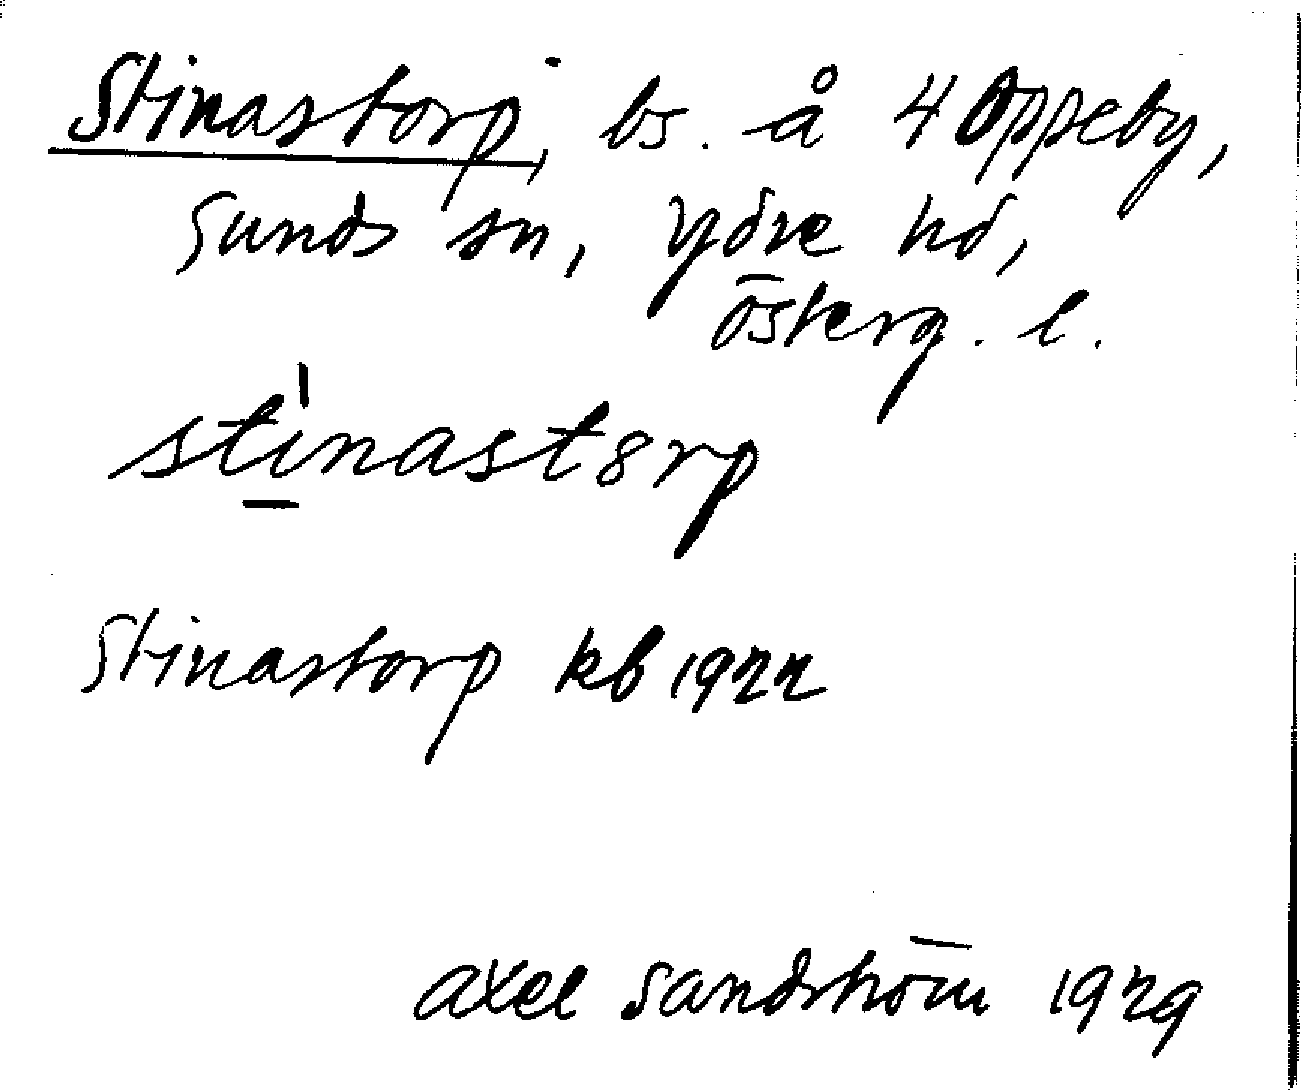 Stinastorp, bs. å 4 Oppeby,
Sunds sn, Ydre hd,
Österg. l.
sti̠'nastȣrp
Stinastorp kb 1922
Axel Sandström 1929